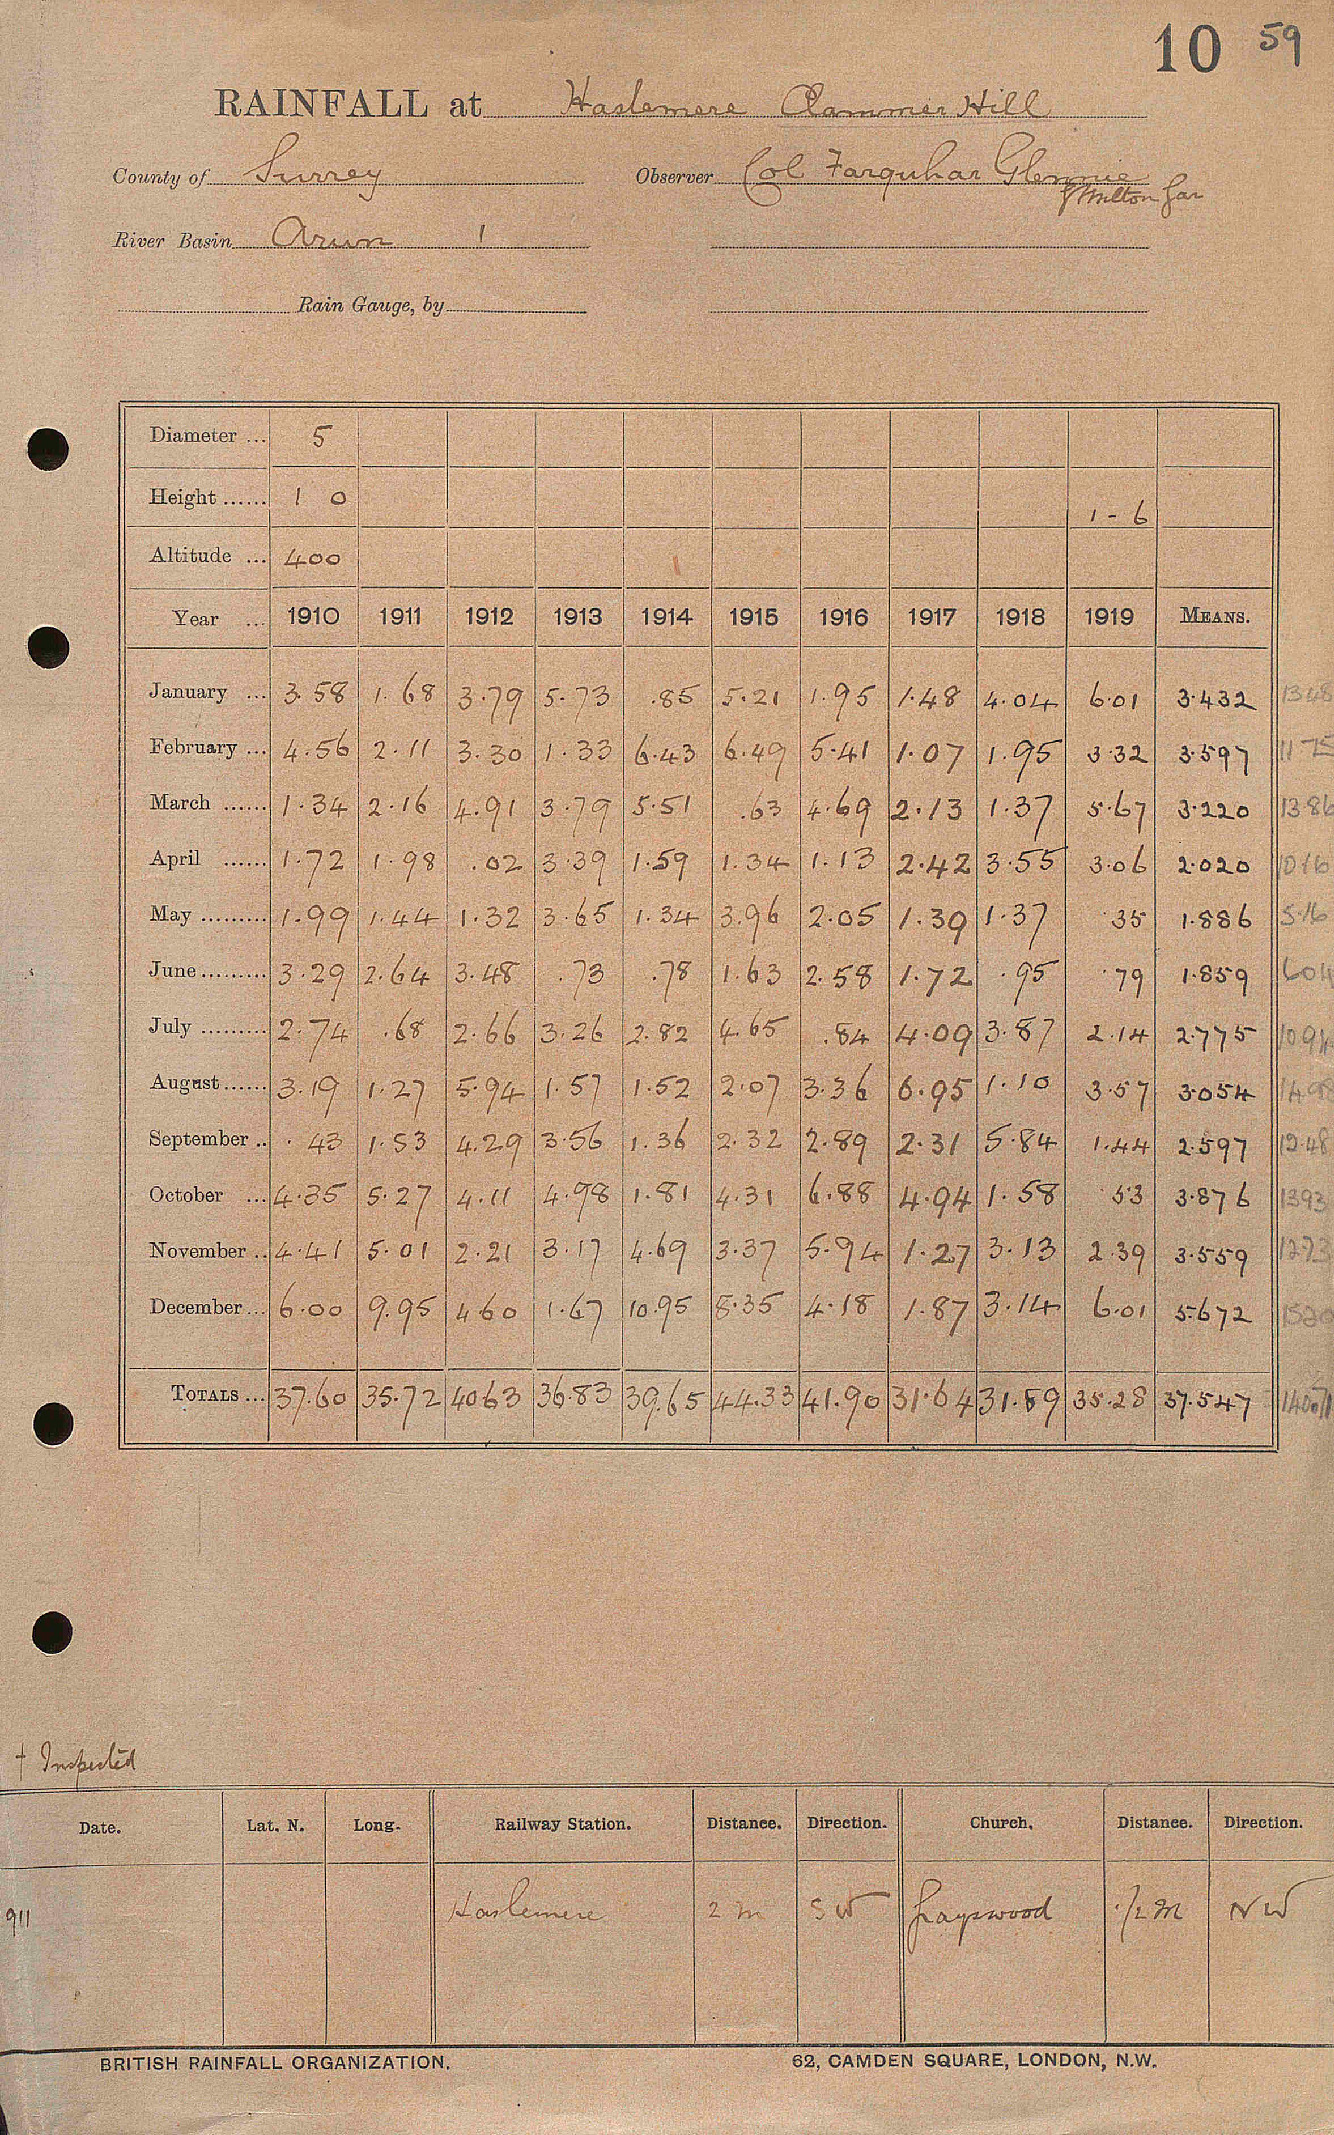 10 59
RAINFALL at Haslemere Clammer Hill
County of Surrey Observer Col Farquhar Glennie
J Milton Gar
River Basin Arun 1
Rain Gauge, by
Diameter ... 5
Height ...... 1 0 1-6
Altitude ... 400
Year ... 1910 1911 1912 1913 1914 1915 1916 1917 1918 1919 MEANS.
January ... 3.58 1.68 3.79 5.73 .85 5.21 1.95 1.48 4.04 6.01 3.432 1348
February ... 4.56 2.11 3.30 1.33 6.43 6.49 5.41 1.07 1.95 3.32 3.597 1175
March ...... 1.34 2.16 4.91 3.79 5.51 .63 4.69 2.13 1.37 5.67 3.220 1386
April ...... 1.72 1.98 .02 3.39 1.59 1.34 1.13 2.42 3.55 3.06 2.020 1016
May ......... 1.99 1.44 1.32 3.65 1.34 3.96 2.05 1.39 1.37 .35 1.886 5.16
June ......... 3.29 2.64 3.48 .73 .78 1.63 2.58 1.72 .95 .79 1.859 604
July ......... 2.74 .68 2.66 3.26 2.82 4.65 .84 4.09 3.87 2.14 2.775
August ...... 3.19 1.27 5.94 1.57 1.52 2.07 3.36 6.95 1.10 3.57 3.054
September .. .43 1.53 4.29 3.56 1.36 2.32 2.89 2.31 5.84 1.44 2.597 1248
October ... 4.35 5.27 4.11 4.98 1.81 4.31 6.88 4.94 1.58 .53 3.876 1393
November .. 4.41 5.01 2.21 3.17 4.69 3.37 5.94 1.27 3.13 2.39 3.559 1273
December ... 6.00 9.95 4.60 1.67 10.95 8.35 4.18 1.87 3.14 6.01 5.672
TOTALS ... 37.60 35.72 40.63 36.83 39.65 44.33 41.90 31.64 31.89 35.28 37.547
† Inspected
Date. Lat. N. Long. Railway Station. Distance. Direction. Church. Distance. Direction.
911 Haslemere 2 m SW Grayswood 1/2 M NW
BRITISH RAINFALL ORGANIZATION. 62, CAMDEN SQUARE, LONDON, N.W.